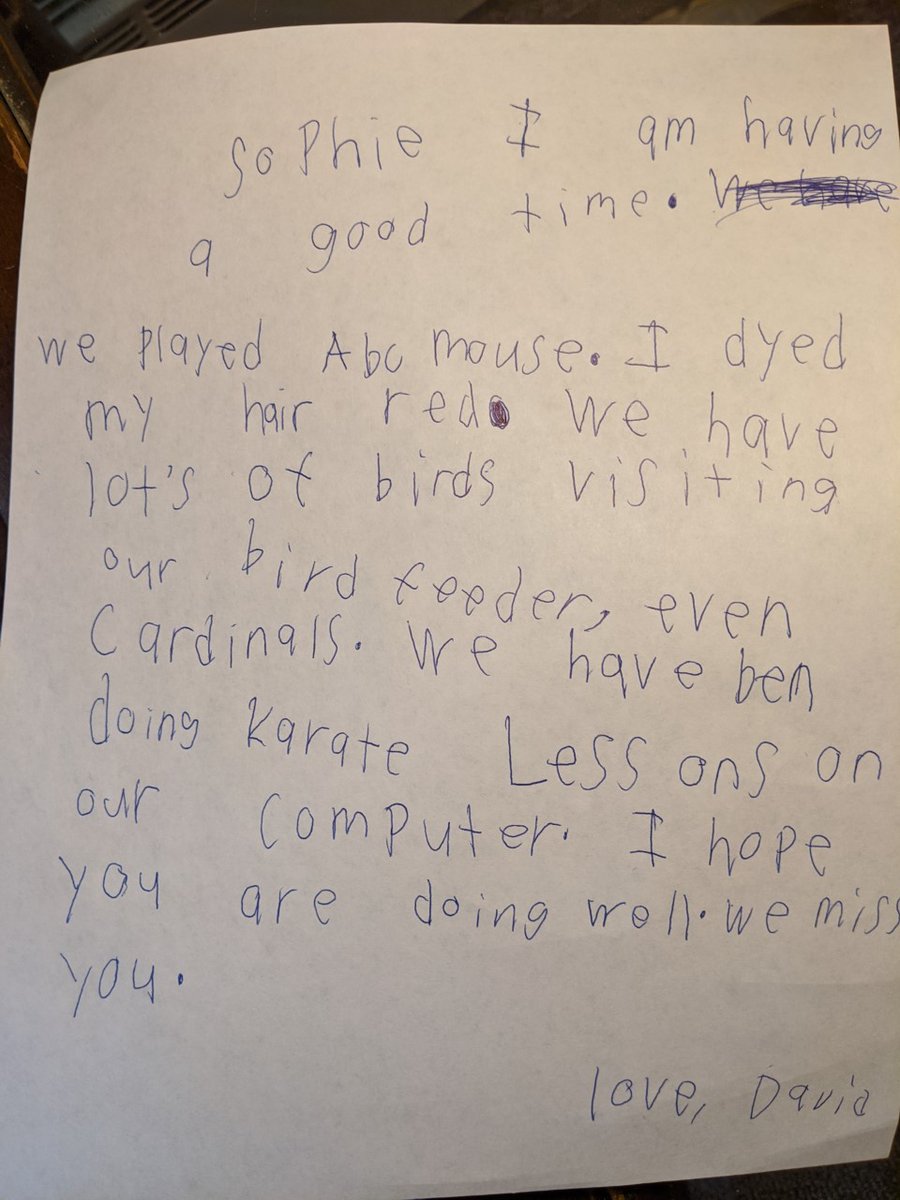 Sophie I am having
a good time. We have
we played Abc mouse. I dyed
my hair red. We have
lot's of birds visiting
our bird feeder, even
Cardinals. We have ben
doing Karate Lessons on
our Computer. I hope
you are doing well. we miss
you.
love, David